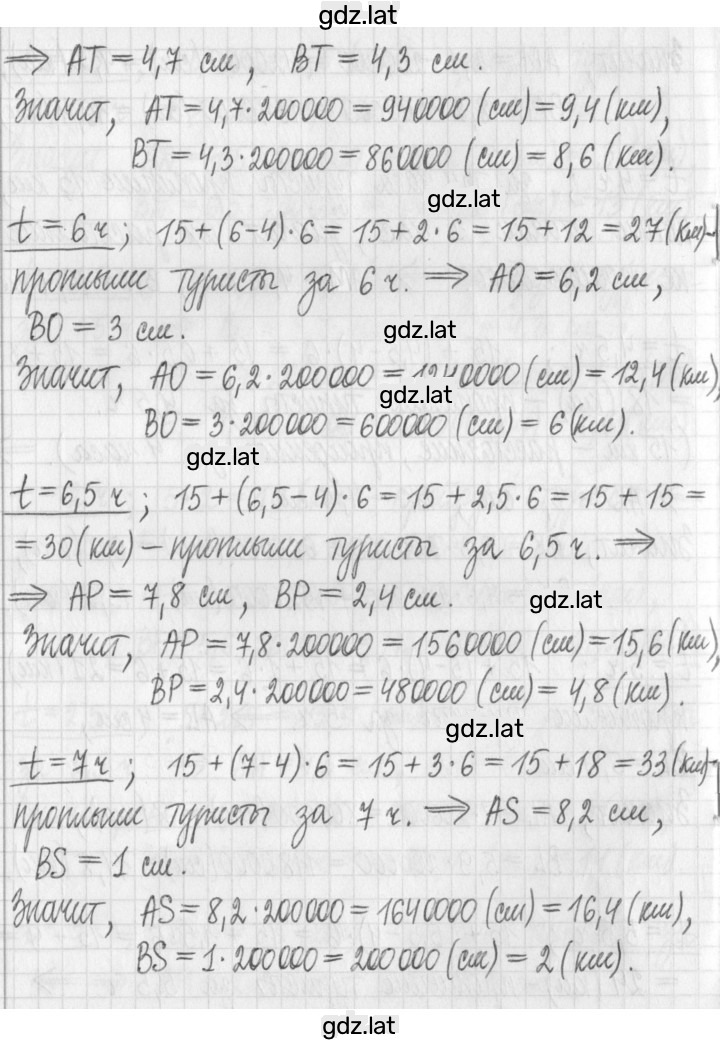 gdz.lat
⇒ AT = 4,7 см, BT = 4,3 см.
Значит, AT = 4,7·200000 = 940000 (см) = 9,4 (км),
BT = 4,3·200000 = 860000 (см) = 8,6 (км).
gdz.lat
t = 6 ч; 15+(6-4)·6 = 15+2·6 = 15+12 = 27 (км) –
проплыли туристы за 6 ч. ⇒ AO = 6,2 см,
BO = 3 см.
gdz.lat
Значит, AO = 6,2·200000 = 1240000 (см) = 12,4 (км),
gdz.lat
BO = 3·200000 = 600000 (см) = 6 (км).
gdz.lat
t = 6,5 ч; 15+(6,5-4)·6 = 15+2,5·6 = 15+15 =
= 30 (км) – проплыли туристы за 6,5 ч. ⇒
⇒ AP = 7,8 см, BP = 2,4 см.
gdz.lat
Значит, AP = 7,8·200000 = 1560000 (см) = 15,6 (км),
BP = 2,4·200000 = 480000 (см) = 4,8 (км).
gdz.lat
t = 7 ч; 15+(7-4)·6 = 15+3·6 = 15+18 = 33 (км) –
проплыли туристы за 7 ч. ⇒ AS = 8,2 см,
BS = 1 см.
Значит, AS = 8,2·200000 = 1640000 (см) = 16,4 (км),
BS = 1·200000 = 200000 (см) = 2 (км).
gdz.lat